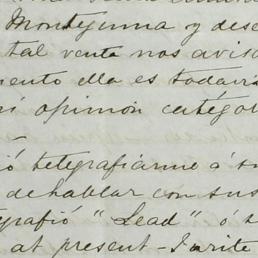 Montezuma y des
tal venta nos avis
mento ella es todaví
mi opinion catego
ió telegrafiarme ó s
dehablar con sus
grafió "Lead" ó s
at present - Write